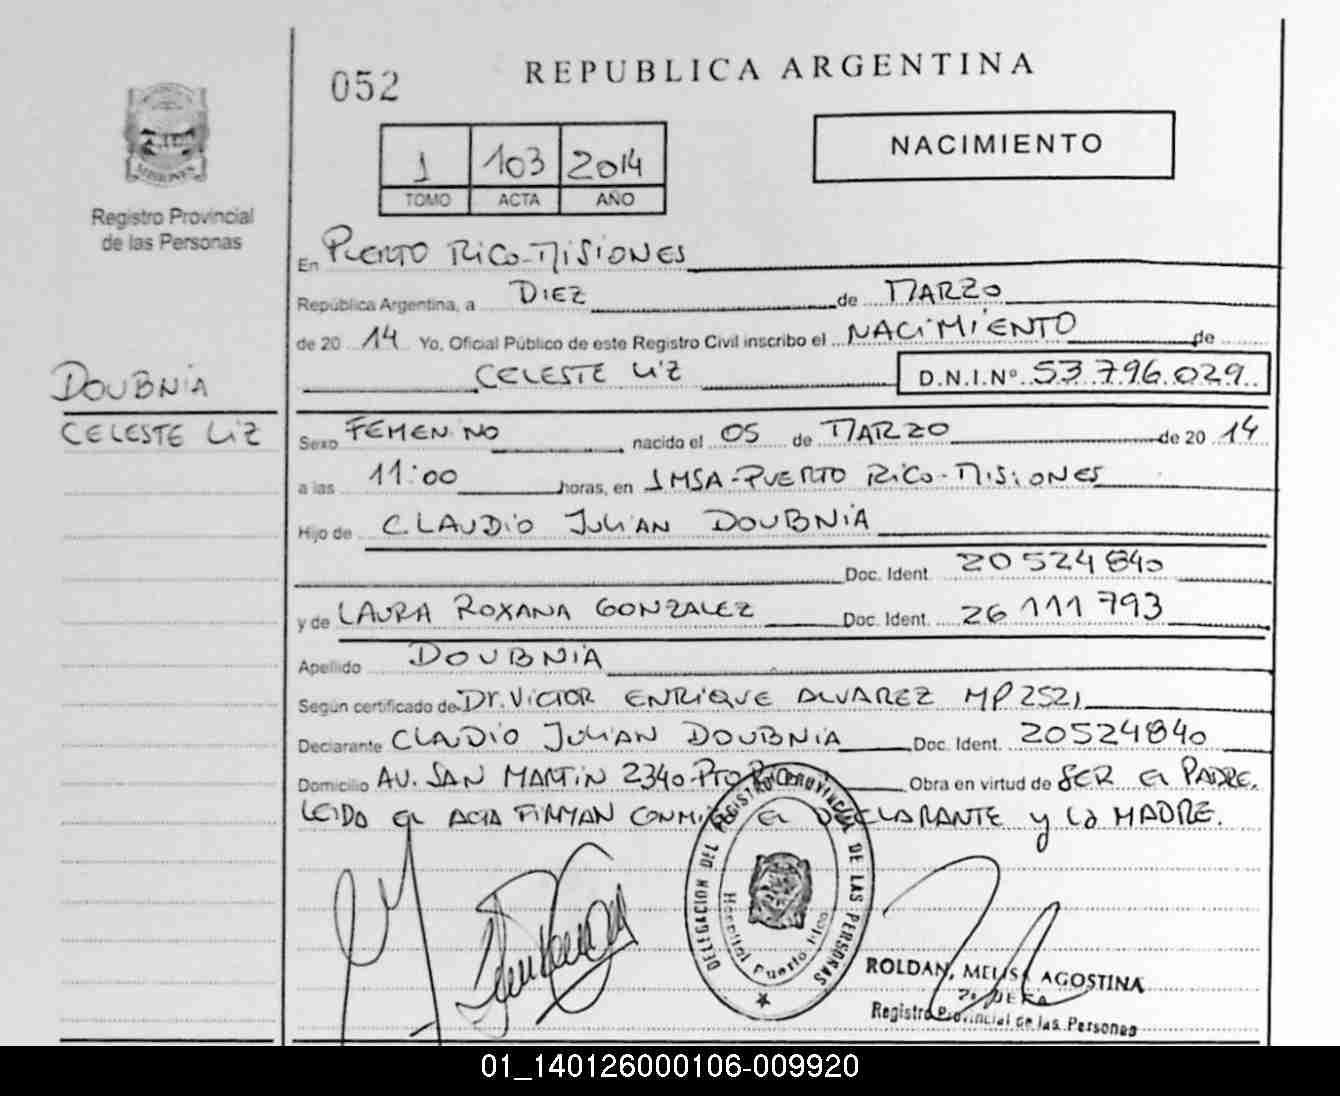 052
REPUBLICA ARGENTINA
NACIMIENTO
1 103 2014
TOMO ACTA AÑO
MISIONES
Registro Provincial
de las Personas
En PUERTO RICO-MISIONES
República Argentina, a DIEZ de MARZO
de 2014 Yo, Oficial Público de este Registro Civil inscribo el NACIMIENTO de
CELESTE LIZ D.N.I.Nº 53.796.029
DOUBNIA
CELESTE LIZ
Sexo FEMENINO nacido el 05 de MARZO de 2014
a las 11:00 horas, en IMSA-PUERTO RICO-MISIONES
Hijo de CLAUDIO JULIAN DOUBNIA
Doc. Ident. 20524840
y de LAURA ROXANA GONZALEZ Doc. Ident. 26111793
Apellido DOUBNIA
Según certificado de Dr. VICTOR ENRIQUE ALVAREZ MP 2521
Declarante CLAUDIO JULIAN DOUBNIA Doc. Ident. 20524840
Domicilio AV. SAN MARTIN 2340-PTO Obra en virtud de SER EL PADRE.
LEIDA EL ACTA FIRMAN CONMIGO EL DECLARANTE y La MADRE.
DELEGACION DEL REGISTRO PROVINCIAL DE LAS PERSONAS
Hospital Puerto Rico
ROLDAN, MELISA AGOSTINA
Registro Provincial de las Personas
01_140126000106-009920